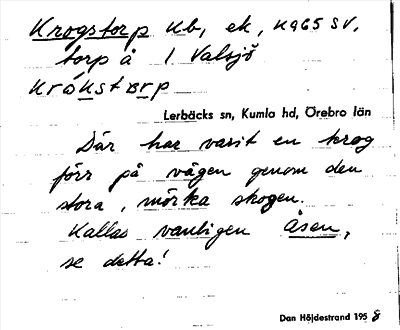 Krogstorp Kb, ek, K965 SV,
torp å 1 Valsjö
krókstɒrp
Lerbäcks sn, Kumla hd, Örebro län
Där har varit en krog
förr på vägen genom den
stora, mörka skogen.
Kallas vanligen Åsen,
se detta!
Dan Höjdestrand 1958